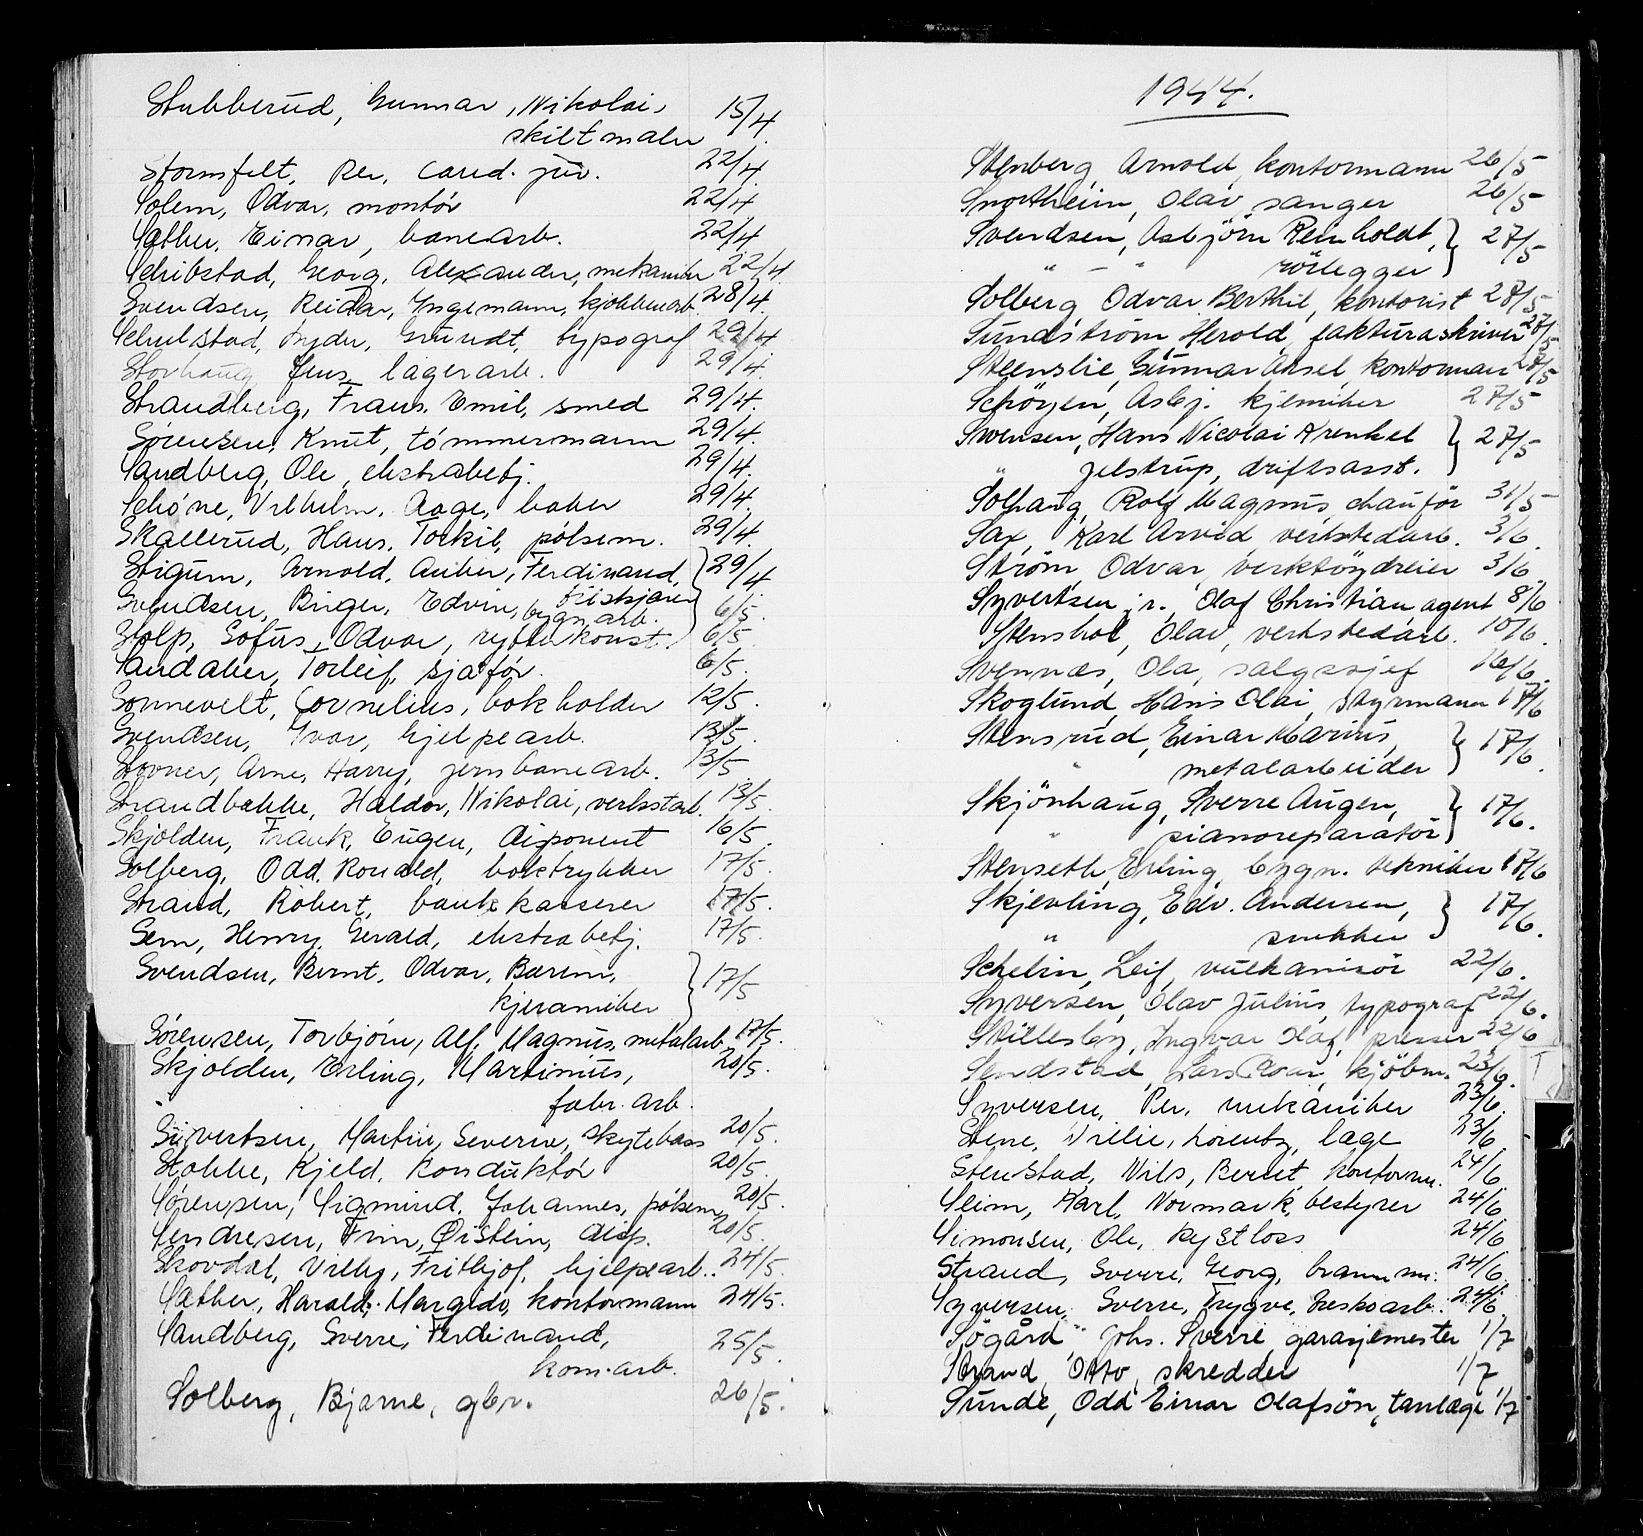 Stubberud, Gunnar, Nikolai, 15/4
skiltmaler
Stormfelt, Per, cand. jur. 22/4
Solem, Odvar, montör 22/4
Sæther, Einar, banearb. 22/4
Schibstad, Georg, Alexander, mekaniker 22/4
Svendsen, Reidar, Ingemann, kjökkenarb. 28/4.
Schulstad, Grundt, typograf 29/4
Storhaug Jens, lagerarb. 29/4.
Strandberg, Frans. Emil, smed 29/4.
Sörensen, Knut, tömmermann 29/4.
Sandberg, Ole, ekstrabetj. 29/4.
Schöne, Vilhelm, Aage, baker 29/4.
Skallerud, Hans, Torkil, pölsem. 29/4.
Stigum, Arnold, Anker, Ferdinand, } 29/4
friskjaren
Svendsen, Birger, Edvin, bygn.arb. 6/5.
Stolp, Sofus, Odvar, konst. 6/5.
Sandaker, Torleif, sjåför. 6/5.
Sonnevelt, Cornelius, bokholder 12/5.
Svendsen, Ivar, hjelpearb. 13/5.
Stovner, Arne, Harry, jernbanearb. 13/5.
Strandbakke, Haldor, Nikolai, verkstarb. 13/5.
Skjolden, Frank, Eugen, disponent 16/5.
Solberg, Odd. Ronald, boktrykker 17/5.
Strand, Robert, bankkasserer 17/5.
Sem, Henry, Gerald, ekstrabetj. 17/5.
Svendsen, Bernt, Odvar, } 17/5
kjeramiker
Sörensen, Torbjörn, Alf, Magnus, metalarb. 17/5.
Skjolden, Erling, Martinius, 20/5.
fabr. arb.
Sivertsen, Martin, Severin, skytebass 20/5.
Stokke, Kjeld, konduktör 20/5.
Sörensen, Sigmund, Johannes, pölsem. 20/5.
Sendresen, Finn, Øistein, disp. 20/5.
Skovdal, Villy, Fritbjof, hjelpearb. 24/5.
Sæther, Harald, Margido, kontormann 24/5.
Sandberg, Sverre, Ferdinand, 25/5.
kom.arb.
Solberg, Bjarne, gbr. 26/5.
1944.
Stenberg, Arnold, kontormann 26/5
Snortheim, Olav, sanger 26/5
Svendsen, Asbjörn Reinholdt, } 27/5
" - " rörlegger
Solberg, Odvar Berthil, kontorist 27/5
Sundström, Herold, fakturaskriver 27/5
Steenslie, Gunnar Aksel, kontorman 27/5
Schöyen, Asbj. kjemiker 27/5
Swensen, Hans Nicolai Krenkel } 27/5
" Jelstrup, driftsasst.
Solhaug, Rolf Magnus, chauför 31/5
Sax, Karl Arvid verkstedarb. 3/6.
Ström, Odvar, verktöydreier 3/6
Syvertsen jr., Olaf Christian agent 8/6
Stenshol, Olav, verkstedarb. 10/6.
Svennæs, Ola, salgssjef 16/6.
Skoglund, Hans Olai, styrmann 17/6
Stensrud, Einar Marius, } 17/6.
" metalarbeider
Skjönhaug, Sverre Augen, } 17/6.
" pianoreparatör
Stenseth, Erling, bygn. tekniker 17/6
Skjevling, Edv. Andersen, } 17/6.
" snekker
Schelin, Leif, vulkanisör 22/6.
Syversen, Olav Julius, typograf 22/6.
Stillesby, Ingvar Olaf, presser 22/6
Sendstad, Lars Roar, kjöbm. 23/6.
Syversen, Per, mekaniker 23/6.
Stene, Willie, Lorentz, læge 23/6
Stenstad, Nils, Bernt, kontorm. 24/6.
Sleim, Karl, Normark, bestyrer 24/6
Simonsen, Ole, kystlos 24/6
Strand, Sverre, Georg, brannm. 24/6.
Syversen, Sverre, Trygve, treskoarb. 24/6.
Sögård, Johs. Sverre, garasjemester 1/7
Strand, Otto, skredder 1/7
Sunde, Odd Einar Olafsön, tanlæge 1/7